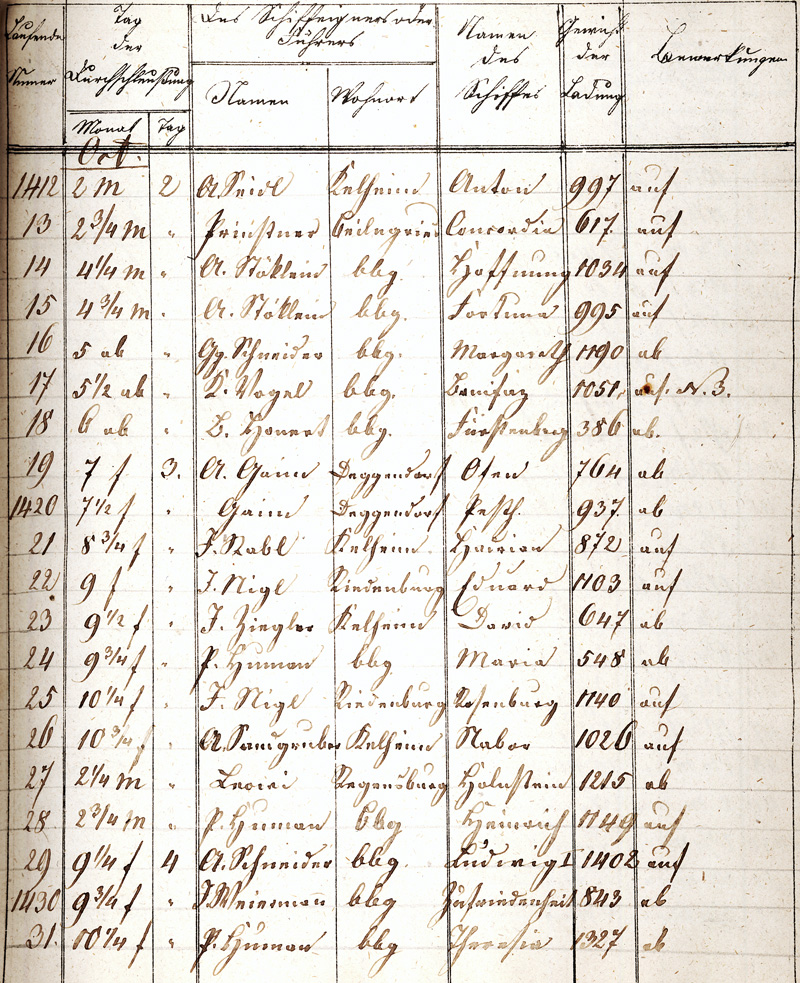 Laufende Numer
Tag der Durchschleußung
Des Schiffeigners oder Führers
Namen des Schiffes
Gewicht der Ladung
Bemerkungen
Monat Tag Namen Wohnort
Oct.
1412 2 m 2 A Seidl Kelheim Anton 997 auf
13 2 3/4 m " Prinstner Beilngries Concordia 617. auf
14 4 1/4 m " A. Stöklein bbg. Hoffnung 1034 auf
15 4 3/4 m " A. Stöklein bbg. Fortuna 995 auf
16 5 ab " Gg. Schneider bbg. Margareth 1190 ab
17 5 1/2 ab " K. Vogel bbg. Bonifaz 1051. auf. N. 3.
18 6 ab " B. Honert bbg. Fürstenberg 386 ab.
19 7 f 3. A. Gaim Deggendorf Ofen 764 ab
1420 7 1/2 f " Gaim Deggendorf Pesth. 937. ab
21 8 3/4 f " J. Rabl Kelheim 872 auf
22 9 f " J. Nigl Riedenburg Eduard 1103 auf
23 9 1/2 f " J. Ziegler Kelheim David 647 ab
24 9 3/4 f " P. Human bbg Maria 548 ab
25 10 1/4 f " J. Nigl Riedenburg Rosenburg 1140 auf
26 10 3/4 f " A. Sandgruber Kelheim Nabor 1026 auf
27 2 1/4 m " Regensburg Holnstein 1215 ab
28 2 3/4 m " P. Human bbg Heinrich 1149 auf
29 9 1/4 f 4 A. Schneider bbg. Ludwig I 1402 auf
1430 9 3/4 f " J Weiermann bbg Zufriedenheit 843 ab
31. 10 1/4 f " P. Human bbg Theresia 1327 ab